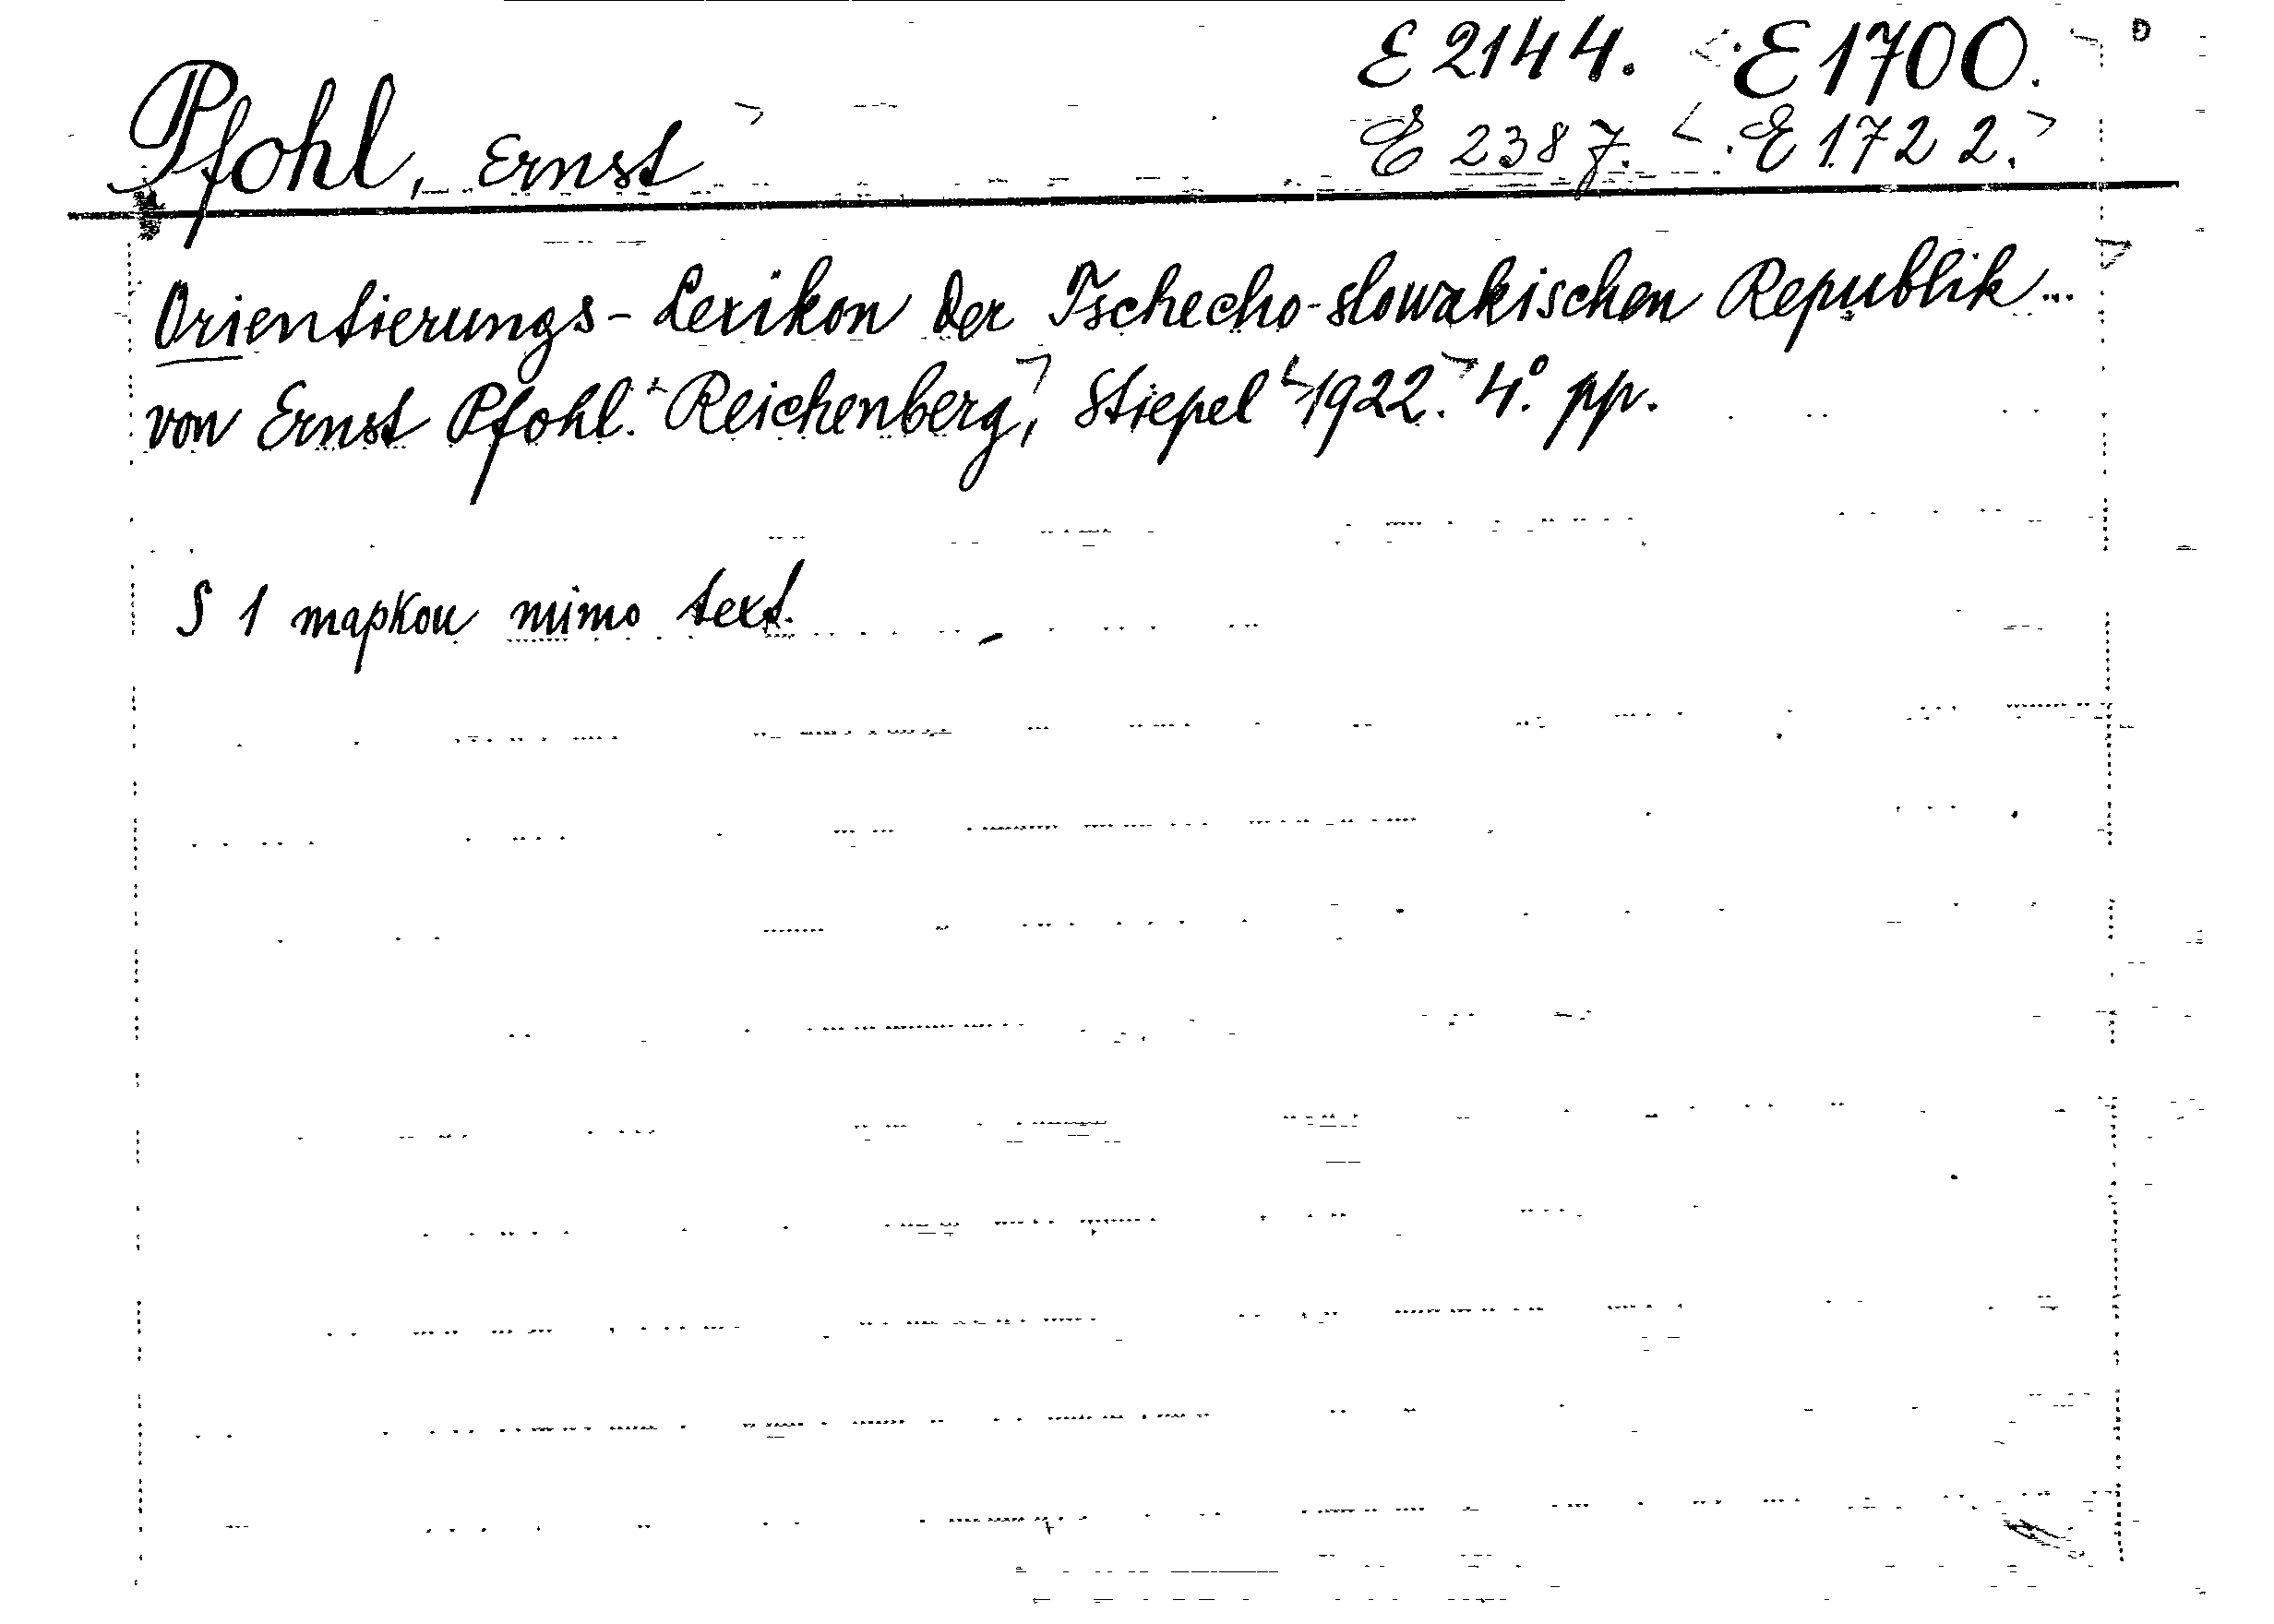 E 2144. E 1700.
Pfohl, Ernst E 2387. E 1722.
Orientierungs-Lexikon der Tschecho-slowakischen Republik...
von Ernst Pfohl. Reichenberg, Stiepel 1922. 4°. pp.
S 1 mapkou mimo text.